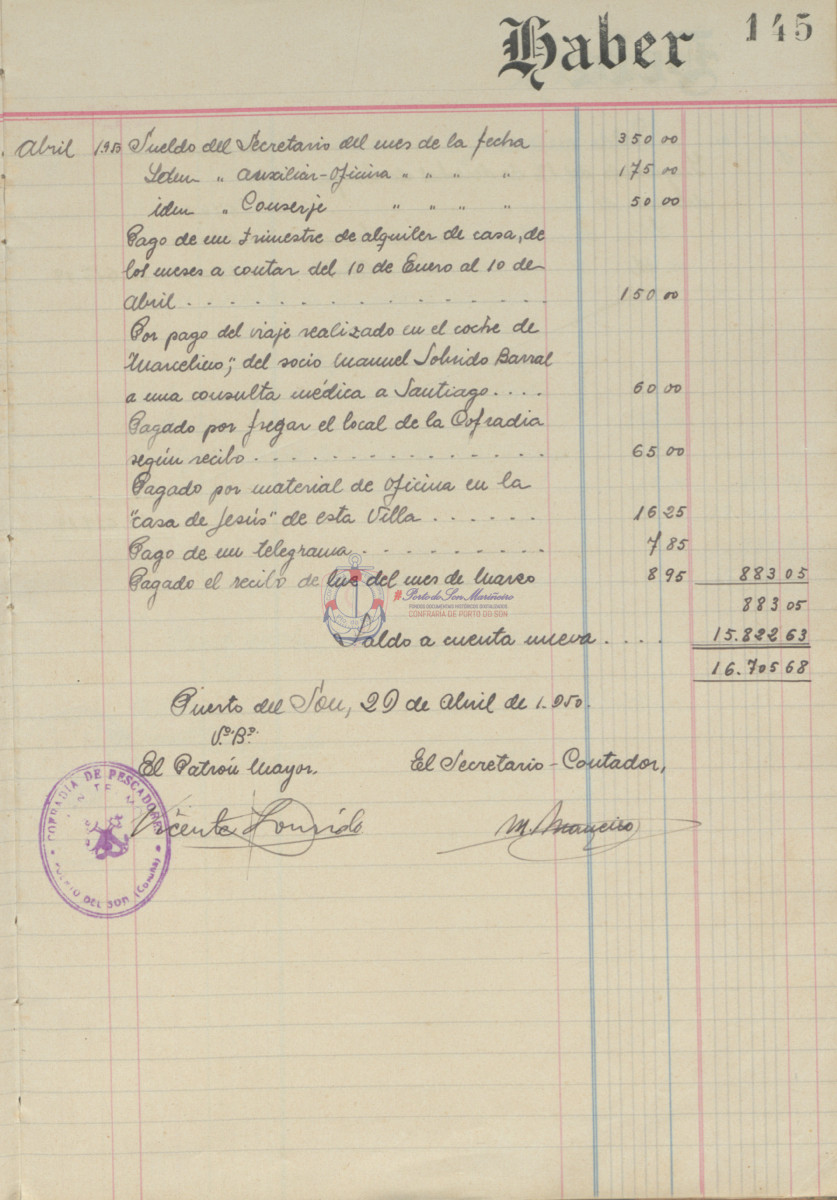 Haber 145
Abril 1.950 Sueldo del Secretario del mes de la fecha 350 00
Idem " Auxiliar-Oficina " " " " 175 00
idem " Conserje " " " " 50 00
Pago de un trimestre de alquiler de casa, de
los meses a contar del 10 de Enero al 10 de
Abril . . . . . . . . . . . . . . . 150 00
Por pago del viaje realizado en el coche de
"Marcelino", del socio Manuel Sobrido Barral
a una consulta médica a Santiago . . . . 60 00
Pagado por fregar el local de la Cofradia
según recibo . . . . . . . . . . . . . . 65 00
Pagado por material de oficina en la
"casa de Jesús" de esta Villa . . . . . . 16 25
Pago de un telegrama . . . . . . . . . . 7 85
Pagado el recibo de luz del mes de Marzo 8 95 883 05
#PortodoSonMariñeiro
FONDOS DOCUMENTAIS HISTÓRICOS DIXITALIZADOS
CONFRARÍA DE PORTO DO SON
883 05
Saldo a cuenta nueva . . . . 15.822 63
16.705 68
Puerto del Son, 29 de Abril de 1.950.
Vº. Bº.
El Patrón Mayor, El Secretario-Contador,
Vicente M. Maneiro
COFRADIA DE PESCADORES
PUERTO DEL SON (Coruña)